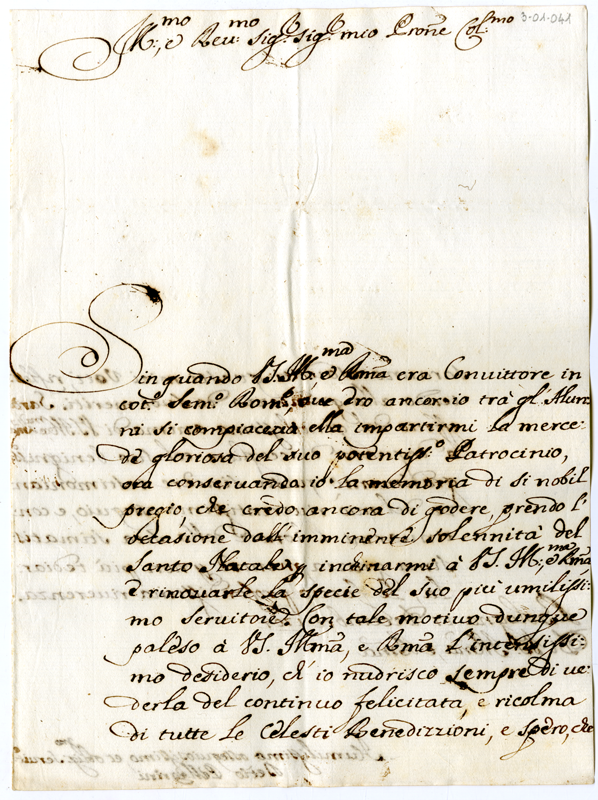 3-01-041
Ill:mo, e Rev:mo Sig:r Sig:r mio Prone Col:mo
Sin quando VS. Ill:ma e Rma era Convittore in
cot:o Sem:o Rom:o, ove ero ancor io trà gl'Alun-
ni si compiaceva ella impartirmi la merce-
de gloriosa del suo potentiss:o Patrocinio,
ora conservando io la memoria di si nobil
pregio, che credo ancora di godere, prendo l'
occasione dall'imminente solennità del
Santo Natale, inchinarmi à VS. Ill:ma, e Rma
e rinovarle la specie del suo più umilissi-
mo servitore. Con tale motivo dunque
paleso à VS. Illma, e Rma l'intensissi-
mo desiderio, ch'io nudrisco sempre di ve-
derla del continuo felicitata, e ricolma
di tutte le Celesti Benedizzioni, e spero, che